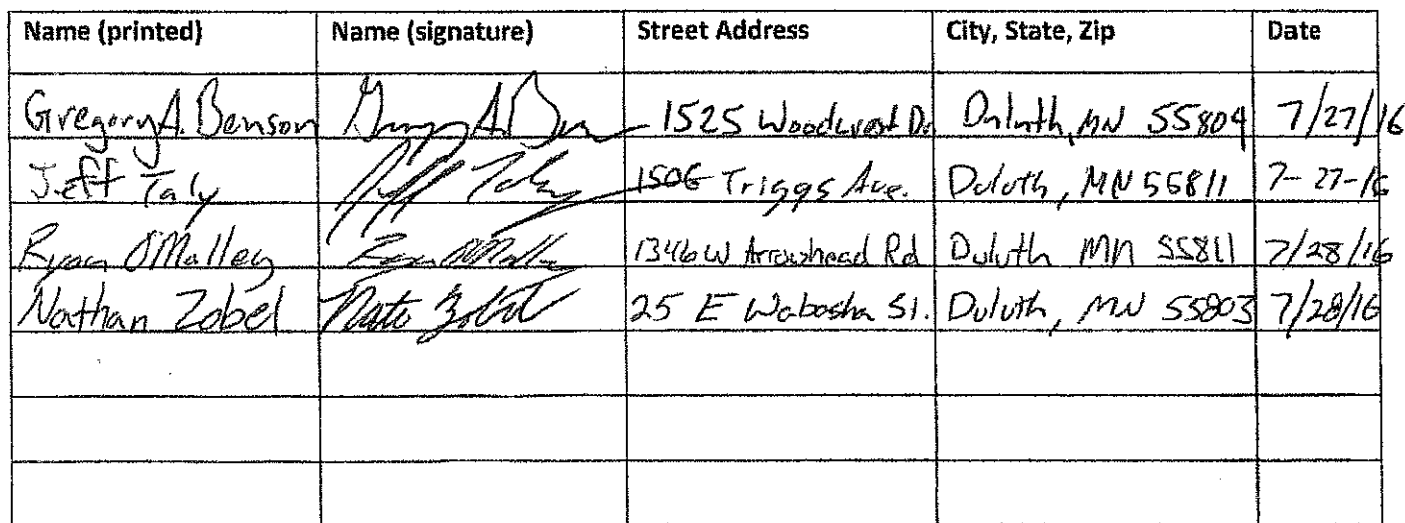 Name (printed) Name (signature) Street Address City, State, Zip Date
Gregory A. Benson 1525 Woodcrest Dr Duluth, MN 55804 7/27/16
Jeff Taly 1506 Triggs Ave. Duluth, MN 55811 7-27-16
Ryan O'Malley Ryan O'Malley 1346 W Arrowhead Rd Duluth MN 55811 7/28/16
Nathan Zobel Nate Zobel 25 E Wabasha St. Duluth, MN 55803 7/28/16